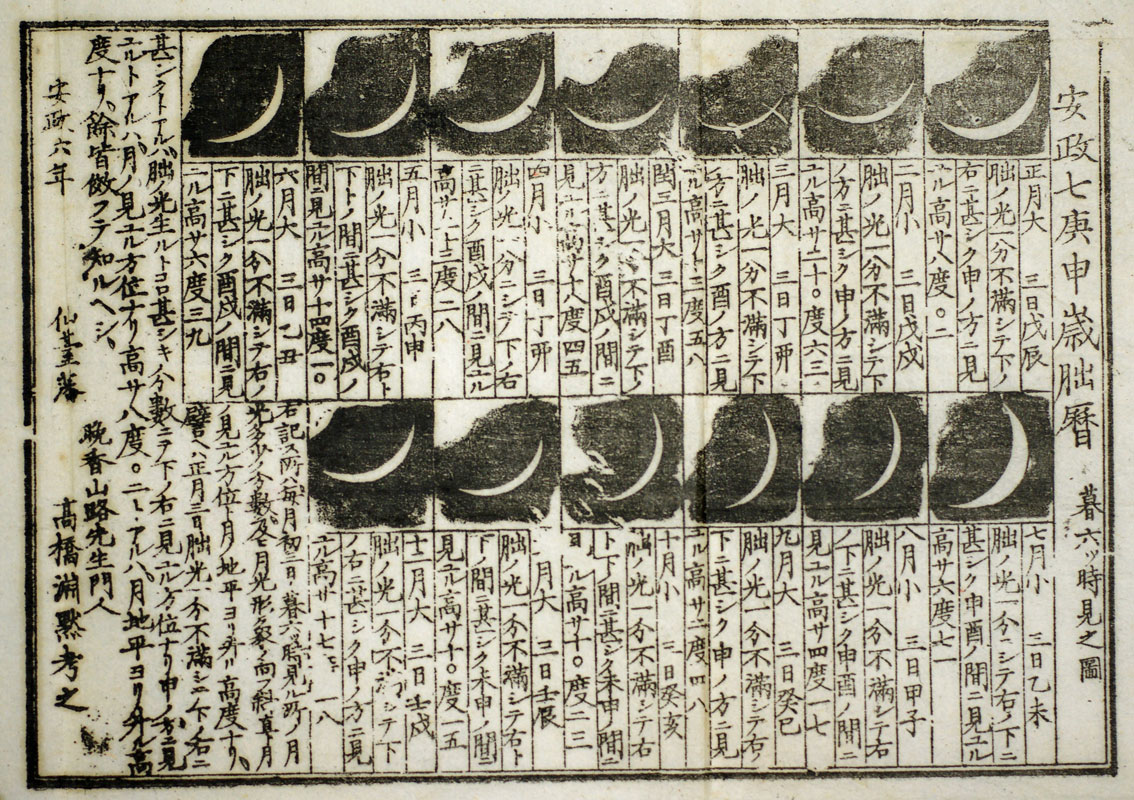 安政七庚申歳朏暦
暮六ッ時見之圖
正月大 三日戊辰
朏ノ光一分不満シテ下ノ
右ニ甚シク申ノ方ニ見
ユル高サ八度〇二
二月小 三日戊戌
朏ノ光一分不満シテ下
ノ方ニ甚シク申ノ方ニ見
ユル高サ二十〇度六三
三月大 三日丁卯
朏ノ光一分不満シテ下
ノ方ニ甚シク酉ノ方ニ見
ユル高サ十三度五八
閏三月大 三日丁酉
朏ノ光一分不満シテ下ノ
方ニ甚シク酉戌ノ間ニ
見ユル高サ十八度四五
四月小 三日丁卯
朏ノ光一分ニシテ下ノ右
ニ甚シク酉戌ノ間ニ見ユル
高サ二十三度二八
五月小 三日丙申
朏ノ光一分不満シテ右ト
下トノ間ニ甚シク酉戌ノ
間ニ見ユル高サ十四度一〇
六月大 三日乙丑
朏ノ光一分不満シテ右ノ
下ニ甚シク酉戌ノ間ニ見
ユル高サ六度三九
七月小 三日乙未
朏ノ光一分ニシテ右ノ下ニ
甚シク申酉ノ間ニ見ユル
高サ六度七一
八月小 三日甲子
朏ノ光一分不満シテ右
ノ下ニ甚シク申酉ノ間ニ
見ユル高サ四度一七
九月大 三日癸巳
朏ノ光一分不満シテ右ノ
下ニ甚シク申ノ方ニ見
ユル高サ二度四八
十月小 三日癸亥
朏ノ光一分不満シテ右
ト下ノ間ニ甚シク未申ノ間ニ
ユル高サ十〇度二三
月大 三日壬辰
朏ノ光一分不満シテ右ト
下ノ間ニ甚シク未申ノ間ニ
見ユル高サ十〇度一五
十二月大 三日壬戌
朏ノ光一分不満シテ下
ノ右ニ甚シク申ノ方ニ見
ユル高サ十七 一八
右記ス所ハ毎月初三日暮六ッ時見ル所ノ月
光多少ノ分数及ヒ月光形象向斜真月
ノ見ユル方位ト月ノ地平ヨリ升ル高度ナリ
譬ヘハ正月三日朏ノ光一分不満シニテ下ノ右ニ
甚シクトアルハ朏ノ光生ルトコロ甚シキ分數ニテ下ノ右ニ見ユル方位ナリ申ノ方ニ見
ユルトアルハ月ノ見ユル方位ナリ高サ八度〇二トアルハ月地平ヨリ升ル高
度ナリ餘皆倣フテ知ルヘシ
晩香山路先生門人
安政六年 仙臺藩 高橋淵黙考之